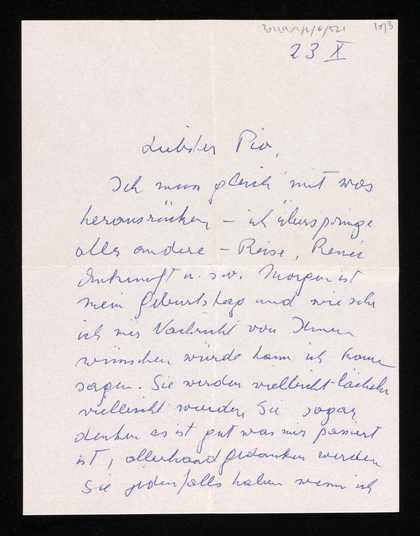 1 of 3
23 X
Liebster Pia,
Ich muss gleich mit was
herausrücken – ich überspringe
alles andere – Reise, Renée
Ankunft u. s. w. Morgen ist
mein Geburtstag und wie sehr
ich mir Nachricht von Ihnen
wünschen würde kann ich kaum
sagen. Sie werden vielleicht lächeln
vielleicht werden Sie sogar
denken es ist gut was mir passiert
ist, allerhand gedanken werden
Sie jedenfalls haben wenn ich